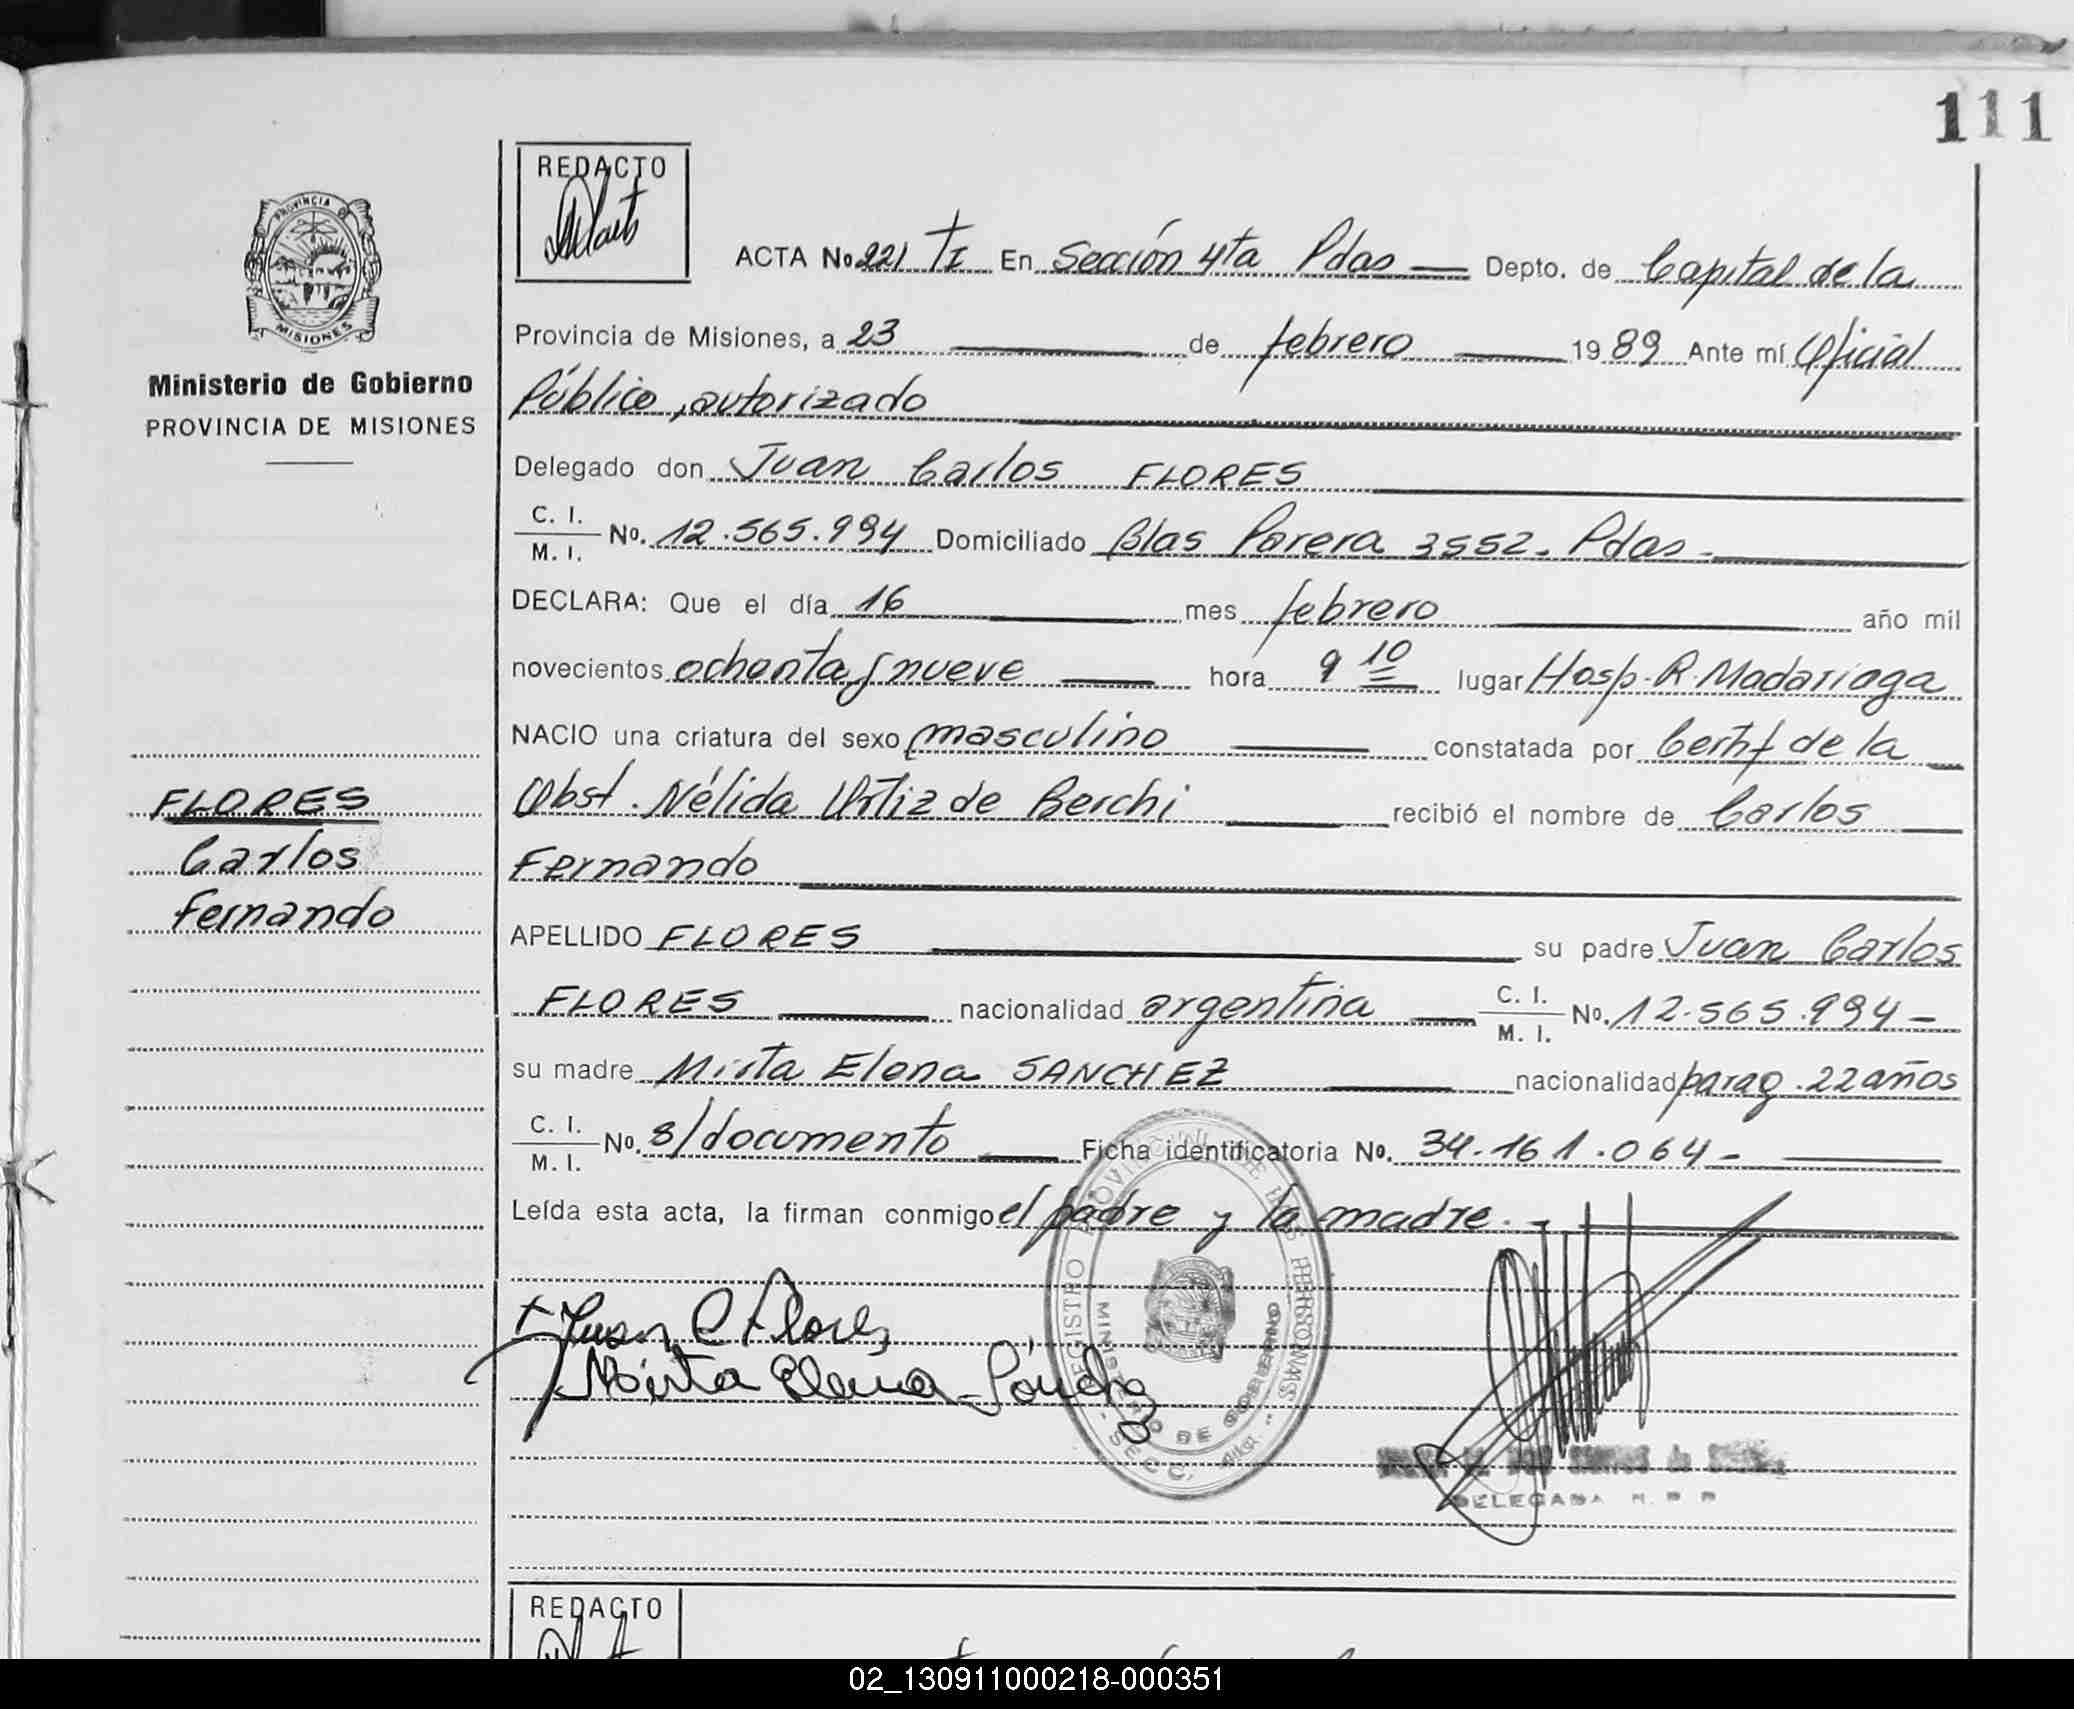 111
REDACTO
PROVINCIA DE
MISIONES
Ministerio de Gobierno
PROVINCIA DE MISIONES
ACTA No 221 TI En Sección 4ta Pdas Depto. de Capital de la
Provincia de Misiones, a 23 de febrero 1989 Ante mí Oficial
Público, autorizado
Delegado don Juan Carlos FLORES
C. I. / M. I. No. 12.565.994 Domiciliado Blas Parera 3552. Pdas.
DECLARA: Que el día 16 mes febrero año mil
novecientos ochenta y nueve hora 9 10 lugar Hosp. R. Madariaga
NACIO una criatura del sexo masculino constatada por Certif de la
Obst. Nélida Ortiz de Berchi recibió el nombre de Carlos
Fernando
FLORES
Carlos
Fernando
APELLIDO FLORES su padre Juan Carlos
FLORES nacionalidad argentina C. I. / M. I. No. 12.565.994 -
su madre Mirta Elena SANCHEZ nacionalidad parag. 22 años
C. I. / M. I. No. s/documento Ficha identificatoria No. 34.161.064 -
Leída esta acta, la firman conmigo el padre y la madre. -
REGISTRO PROVINCIAL DE LAS PERSONAS
MINISTERIO DE GOBIERNO
SECC.
+ Juan C Flores
Mirta Elena Sánchez
DELEGADA
REDACTO
02_130911000218-000351